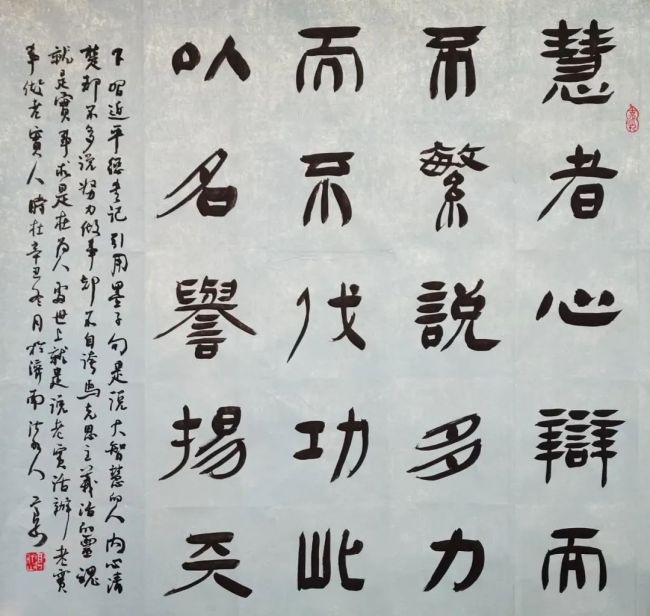 慧者心辯而
不繁說多力
而不伐功此
以名譽揚天
下 習近平總書记引用墨子句是说大智慧的人内心清
楚却不多说努力做事却不自誇馬克思主義活的靈魂
就是實事求是在為人處世上就是说老實话辦老實
事做老實人 時在辛丑冬月於濟南